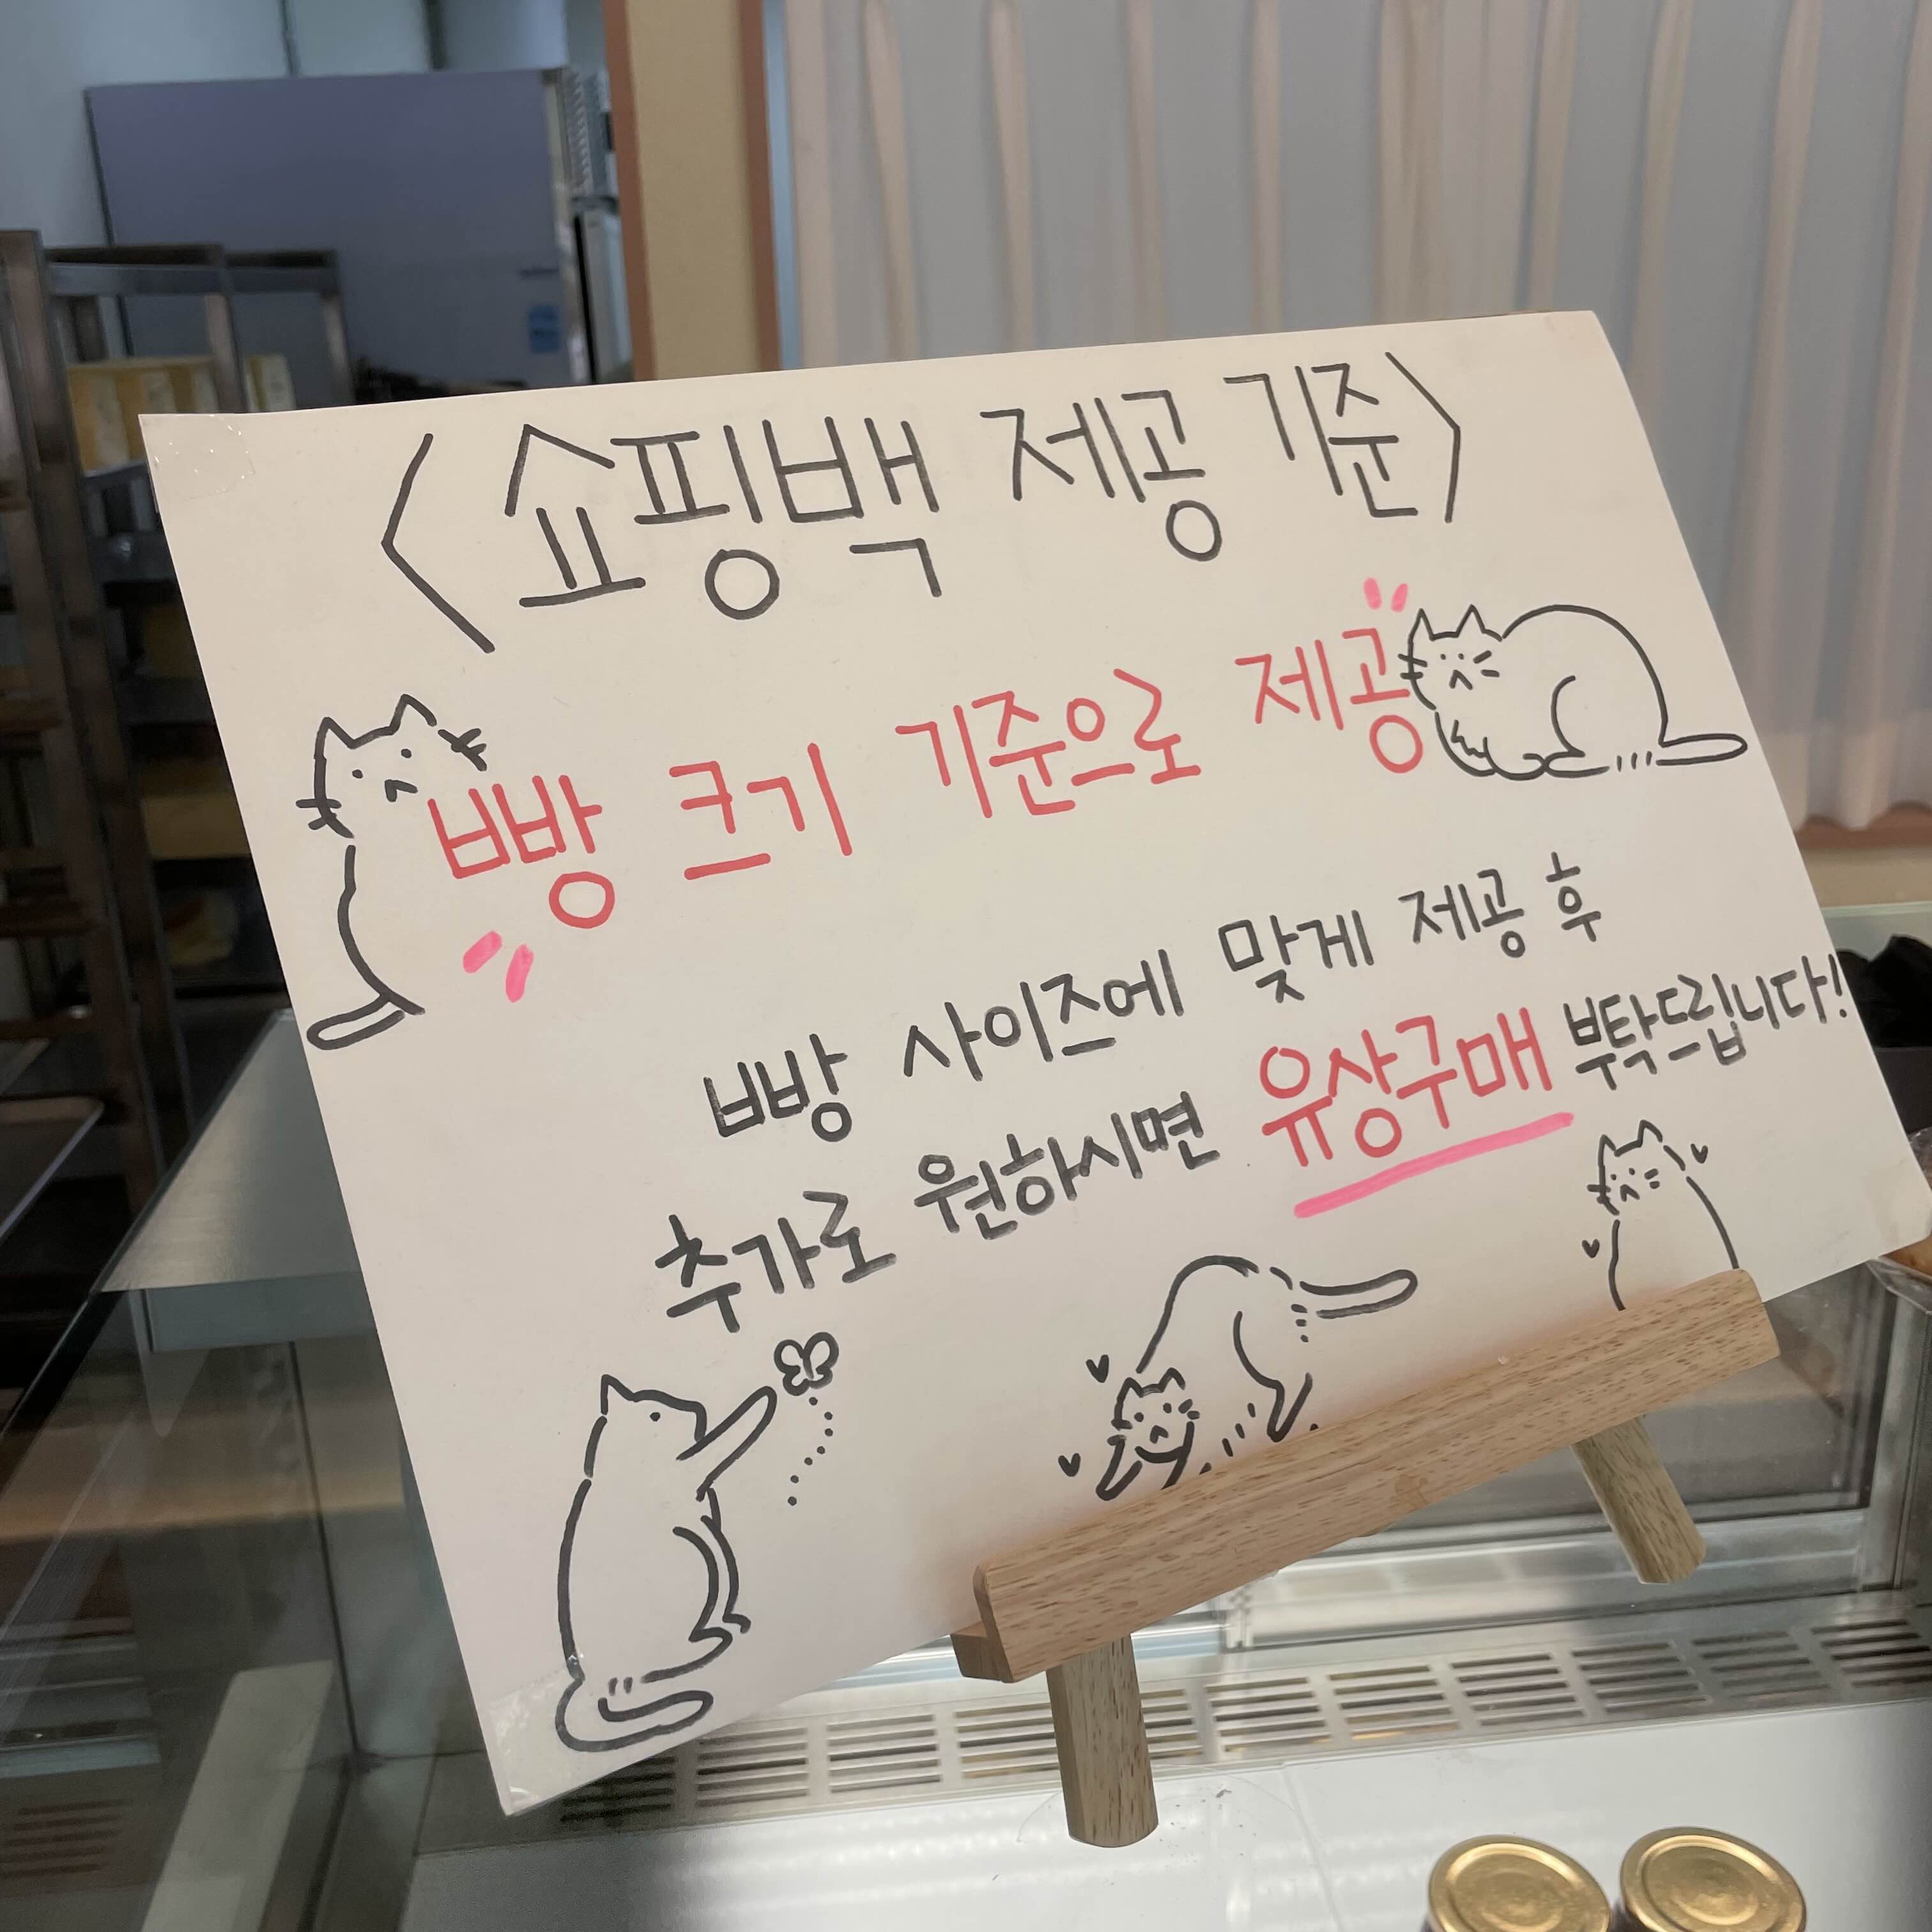 <쇼핑백 제공 기준>
빵 크기 기준으로 제공
빵 사이즈에 맞게 제공 후
추가로 원하시면 유상구매 부탁드립니다!